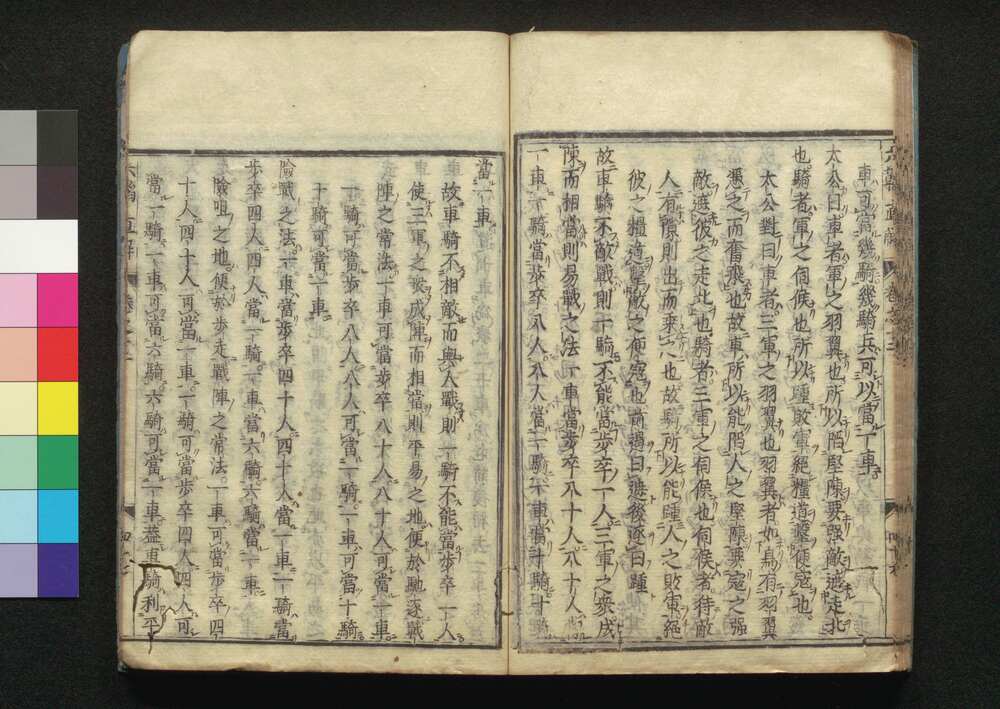 車可當幾騎幾騎兵可以當一車
太公曰車者軍之羽翼也所以陷堅陳要强敵遮走北
也騎者軍之伺候也所以踵敗軍絕糧道擊便寇也
太公對曰車者三軍之羽翼也羽翼者如鳥有羽翼
憑之而奮飛也故車所以能陷人之堅陳要寇之强
敵遮彼之走北也騎者三軍之伺候也伺候者待敵
人有隙則出而乘之也故騎所以能踵人之敗軍絕
彼之糧道擊敵之便寇也前遏曰遮後逐曰踵
故車騎不敵戰則一騎不能當步卒一人三軍之衆成
陳而相當則易戰之法一車當步卒八十人八十人當
一車一騎當步卒八人八人當一騎一車當十騎十騎
當一車
故車騎不相敵而與人戰則一騎不能當步卒一人
使三軍之衆成陣而相當則平易之地便於馳逐戰
陣之常法一車可當步卒八十人八十人可當一車
一騎可當步卒八人八人可當一騎一車可當十騎
十騎可當一車
險戰之法一車當步卒四十人四十人當一車一騎當
步卒四人四人當一騎一車當六騎六騎當一車
險阻之地便於步走戰陣之常法一車可當步卒四
十人四十人可當一車一騎可當步卒四人四人可
當一騎一車可當六騎六騎可當一車蓋車騎利平